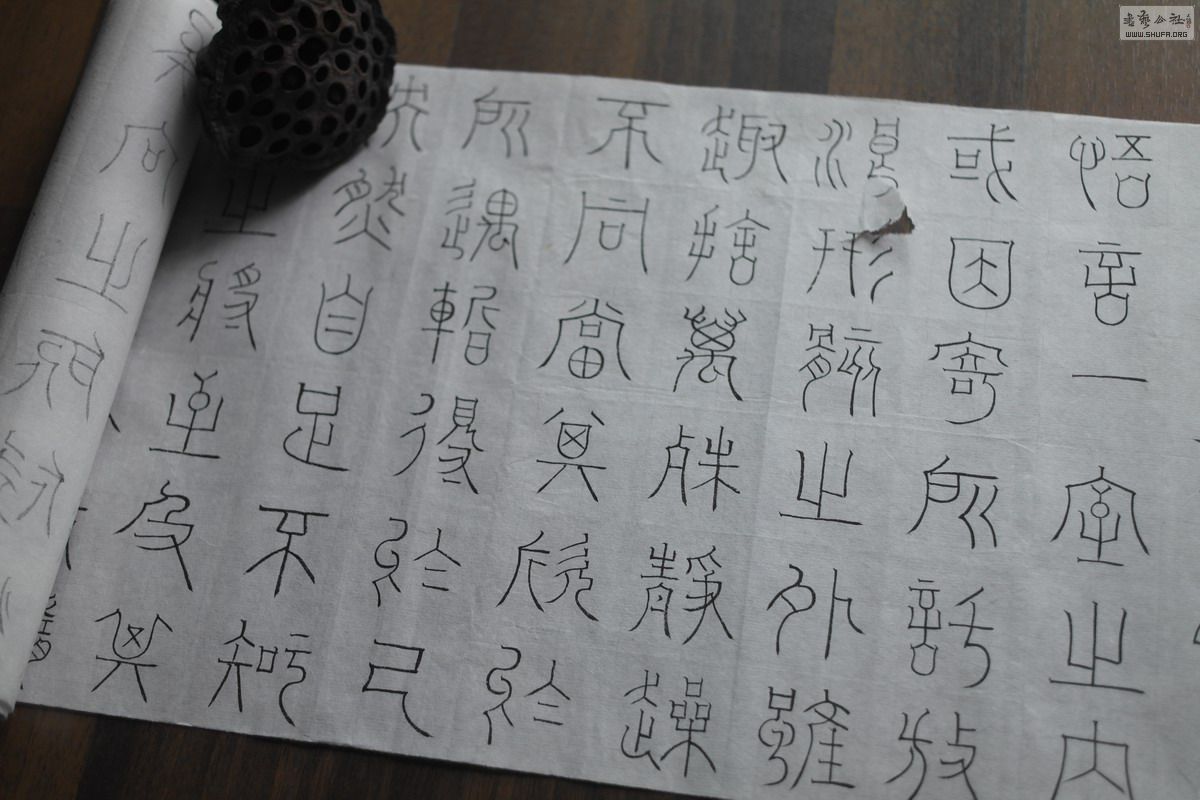 悟言一室之内
或因寄所託放
浪形骸之外雖
趣捨萬殊靜趮
不同當其欣於
所遇暫得於己
快然自足不知
之將至及其
矣向之所欣
書藝公社
WWW.SHUFA.ORG